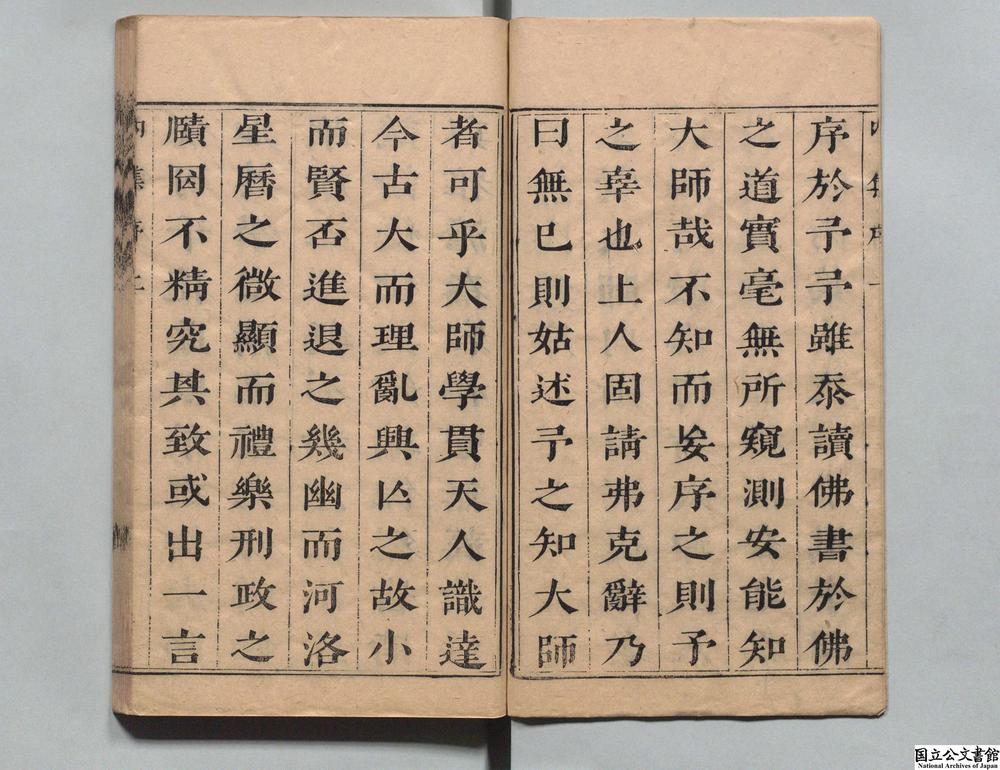 序於予予雖忝讀佛書於佛
之道實毫無所窺測安能知
大師哉不知而妄序之則予
之辜也上人固請弗克辭乃
曰無已則姑述予之知大師
者可乎大師學貫天人識達
今古大而理亂興亾之故小
而賢否進退之幾幽而河洛
星曆之微顯而禮樂刑政之
賾罔不精究其致或出一言
国立公文書館
National Archives of Japan